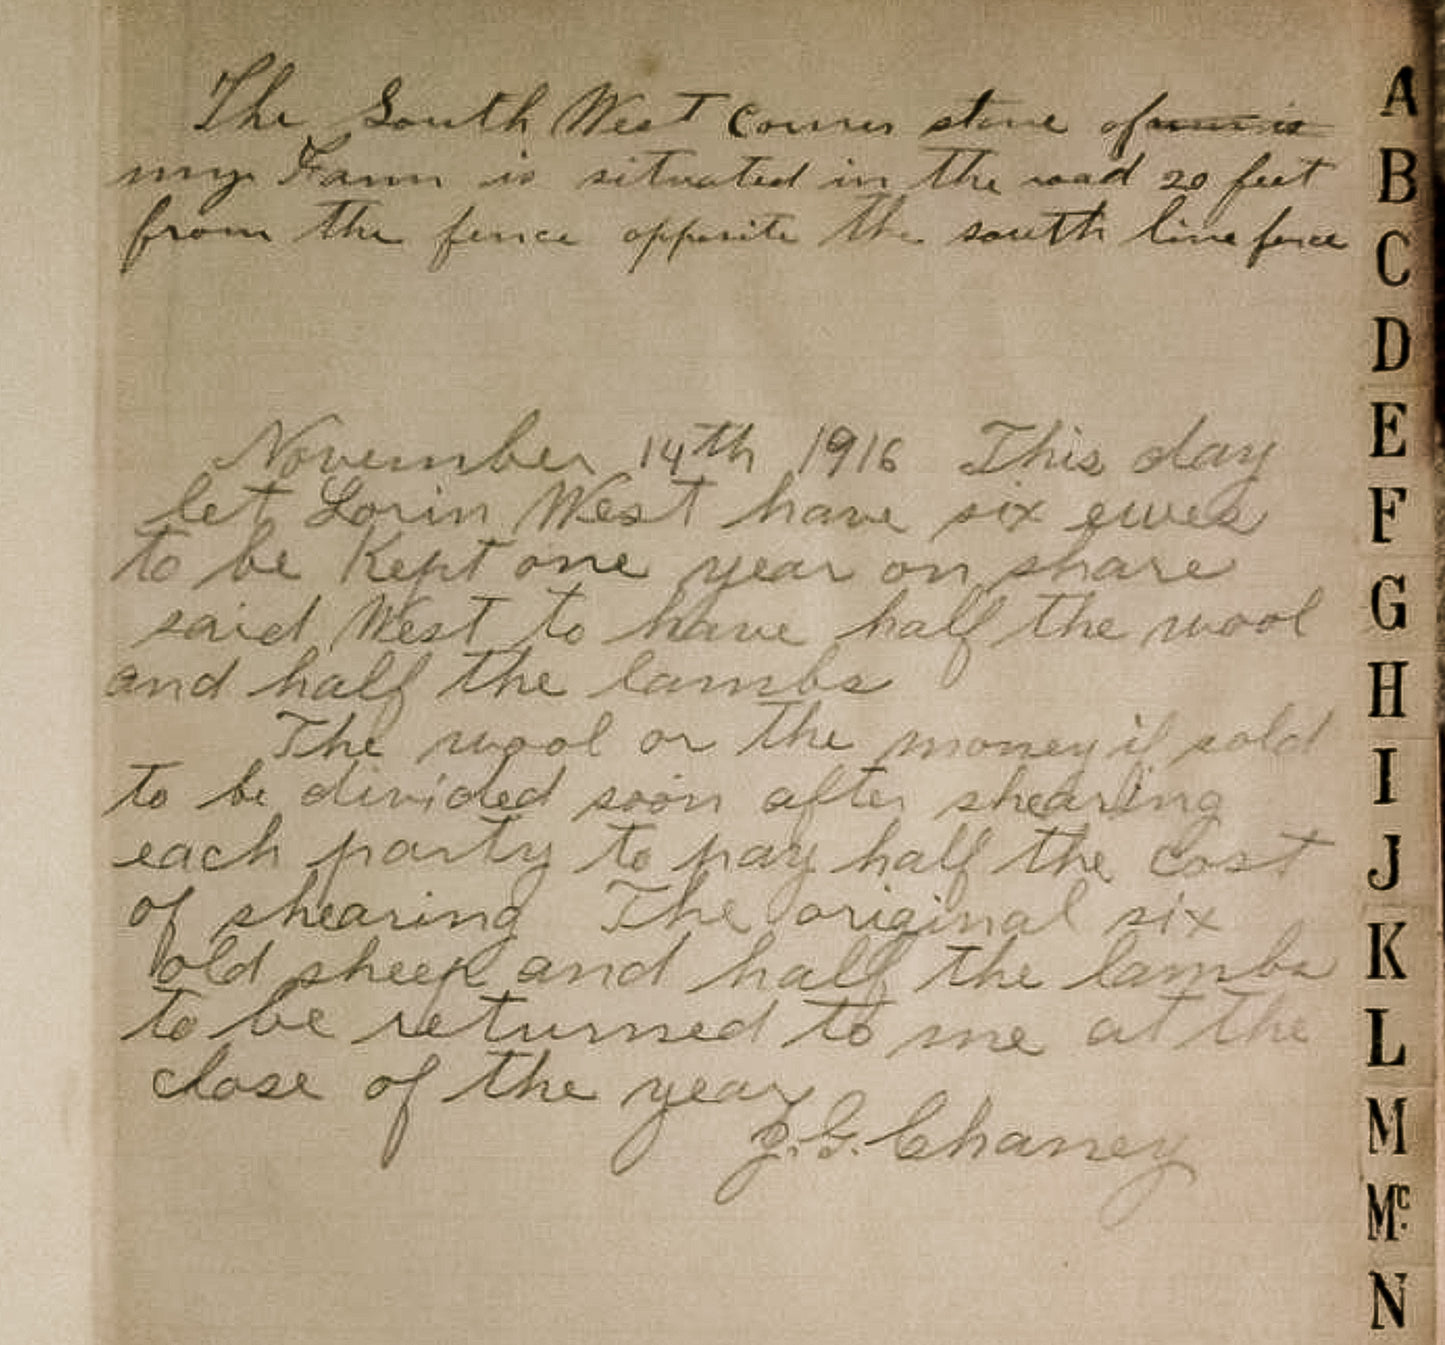 The South West Corner stone of
my Farm is situated in the road 20 feet
from the fence opposite the south line fence
November 14th 1916 This day
let Lorin West have six ewes
to be Kept one year on share
said West to have half the wool
and half the lambs
The wool or the money if sold
to be divided soon after shearing
each party to pay half the Cost
of shearing The original six
old sheep and half the lambs
to be returned to me at the
close of the year
J. G. Chaney
A
B
C
D
E
F
G
H
I
J
K
L
M
Mc
N